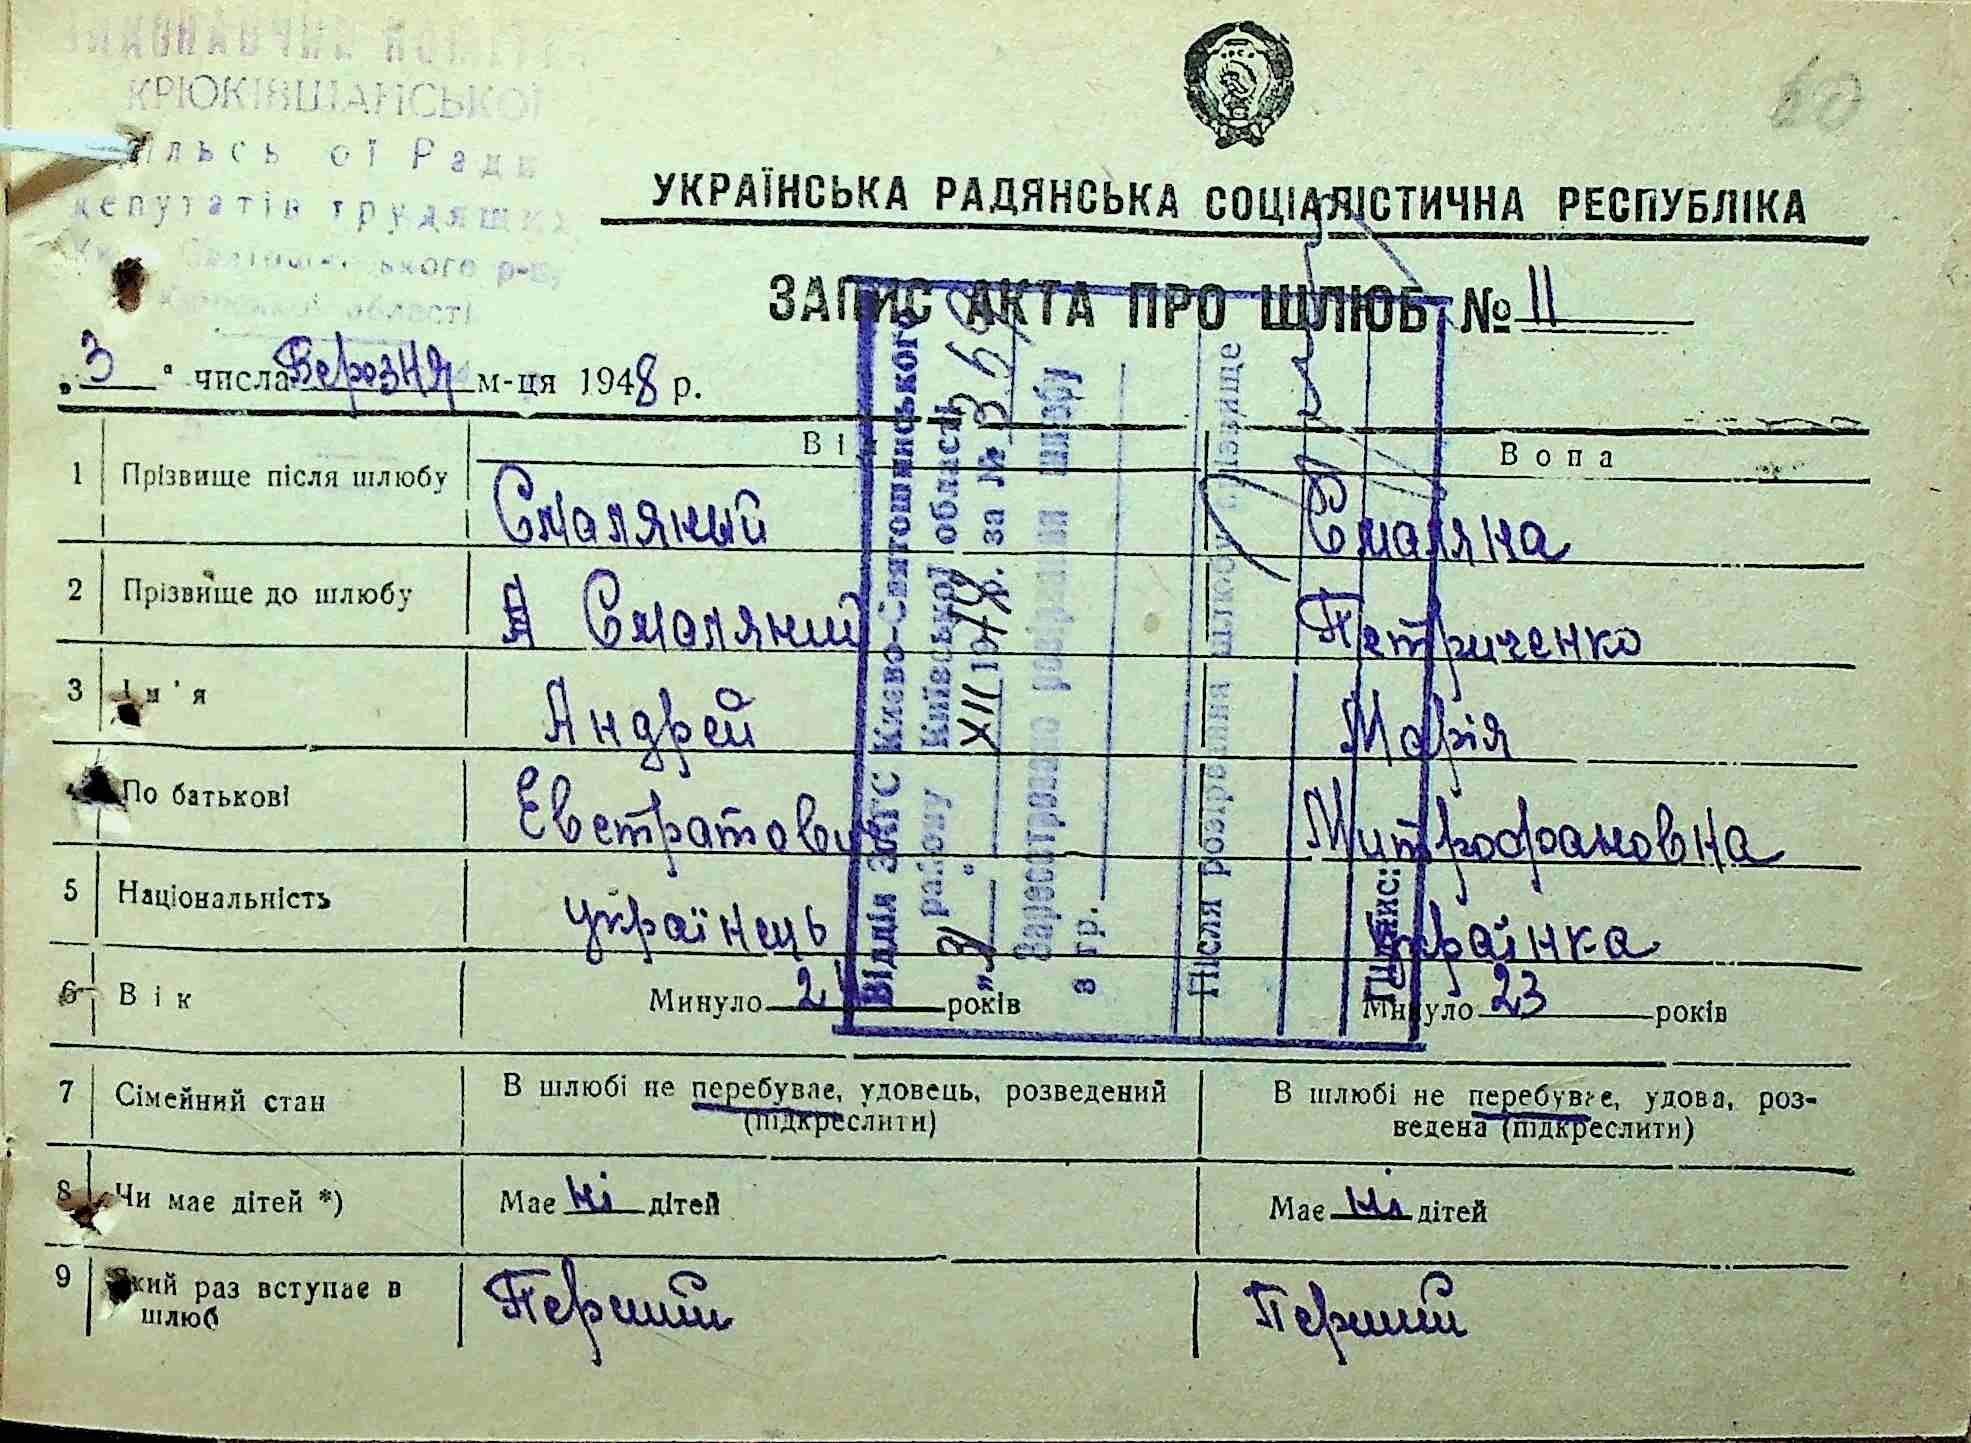 ВИКОНАВЧИЙ КОМІТЕТ
КРЮКІВЩАНСЬКОЇ
Ради
депутатів трудящих
області
60
УКРАЇНСЬКА РАДЯНСЬКА СОЦІАЛІСТИЧНА РЕСПУБЛІКА
ЗАПИС АКТА ПРО ШЛЮБ № 11
„3" числа Березня м-ця 1948 р.
Він Вона
1 Прізвище після шлюбу Смаляный Смаляна
2 Прізвище до шлюбу Смаляний Петриченко
3 Ім'я Андрей Марія
По батькові Евстратович Митрофановна
5 Національність українець українка
6 Вік Минуло років Минуло 23 років
7 Сімейний стан В шлюбі не перебуває, удовець, розведений (підкреслити) В шлюбі не перебуває, удова, роз-
ведена (підкреслити)
8 Чи має дітей *) Має ні дітей Має ні дітей
9 Який раз вступає в шлюб Перший Перший
Відділ ЗАГС Києво-Святошинського
району Київської області
„ " XII 19 р. за №
Зареєстровано розірвання шлюбу
з гр.
Після розірвання шлюбу прізвище
Підпис: